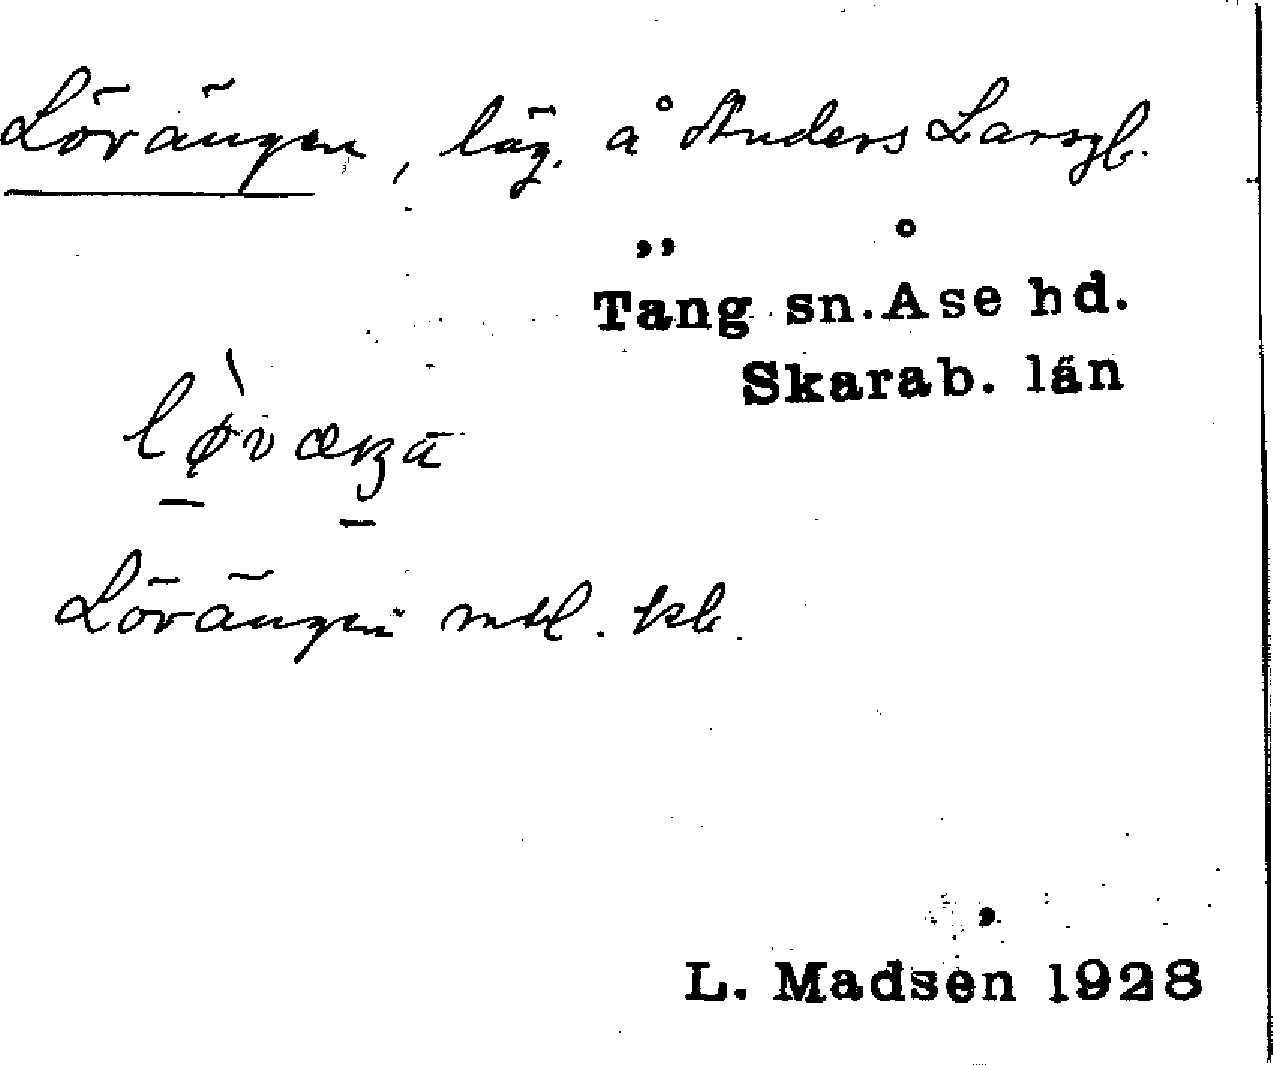 Lövängen, läg. å Anders Larsgb.
Täng sn. Åse hd.
Skarab. län
Lövängen mtl. kb.
L. Madsén 1928